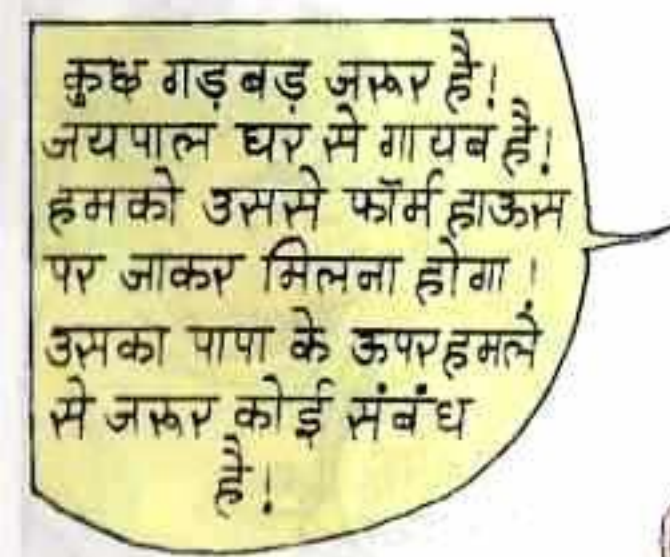 कुछ गड़बड़ जरूर है!
जयपाल घर से गायब है!
हमको उससे फॉर्म हाऊस
पर जाकर मिलना होगा!
उसका पापा के ऊपर हमले
से जरूर कोई संबंध
है!